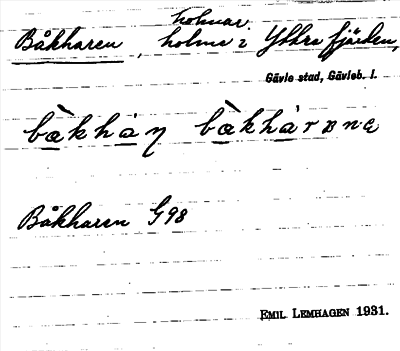 holmar
Båkharen, holme i Yttre fjärden,
Gävle stad, Gävleb. l.
bàkhàn bàkhàrɐnɐ
Båkharen G98
EMIL LEMHAGEN 1931.